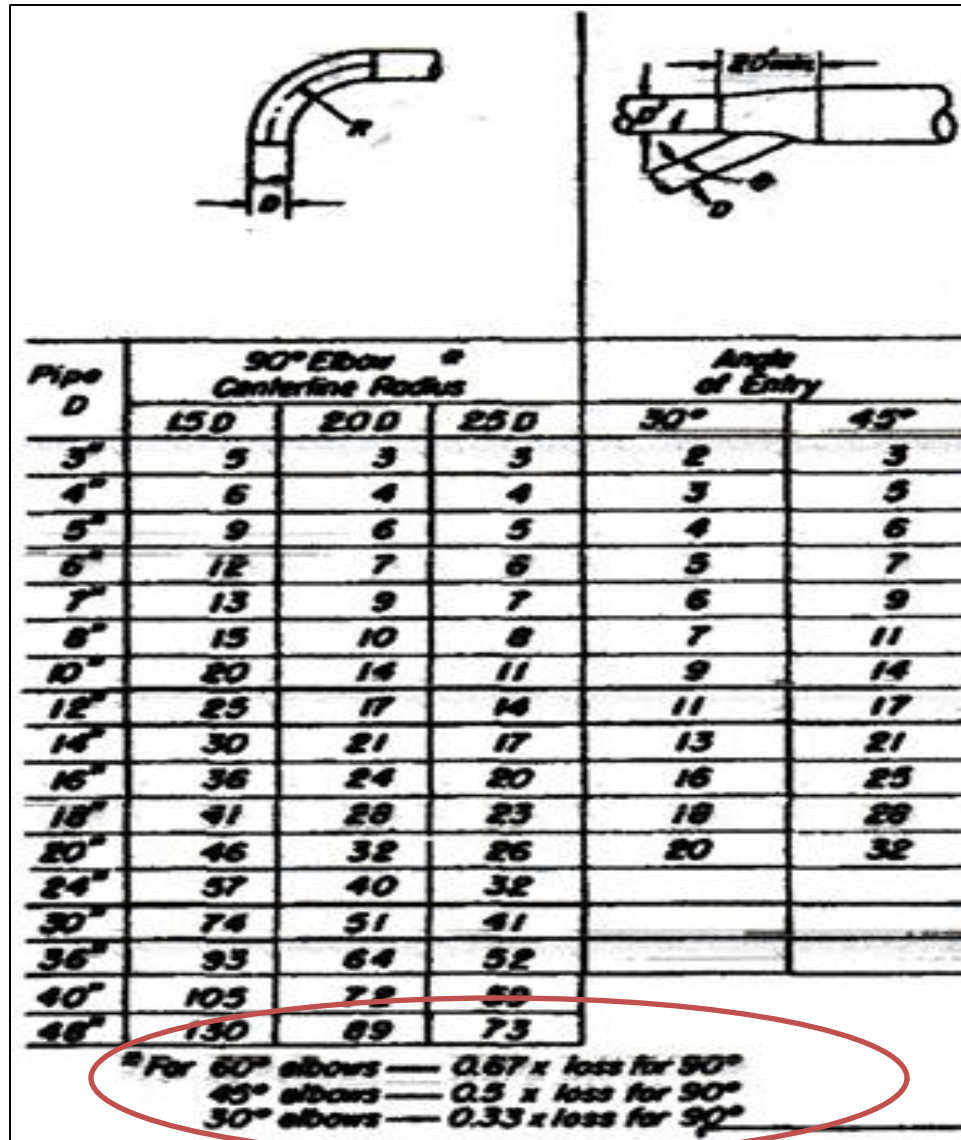 R
D
20'min
D
θ
D
Pipe D
90° Elbow *
Centerline Radius
Angle
of Entry
1.5 D 2.0 D 2.5 D 30° 45°
3" 5 3 3 2 3
4" 6 4 4 3 5
5" 9 6 5 4 6
6" 12 7 6 5 7
7" 13 9 7 6 9
8" 15 10 8 7 11
10" 20 14 11 9 14
12" 25 17 14 11 17
14" 30 21 17 13 21
16" 36 24 20 16 25
18" 41 28 23 18 28
20" 46 32 26 20 32
24" 57 40 32
30" 74 51 41
36" 93 64 52
40" 105 72 59
48" 130 89 73
* For 60° elbows — 0.67 x loss for 90°
45° elbows — 0.5 x loss for 90°
30° elbows — 0.33 x loss for 90°